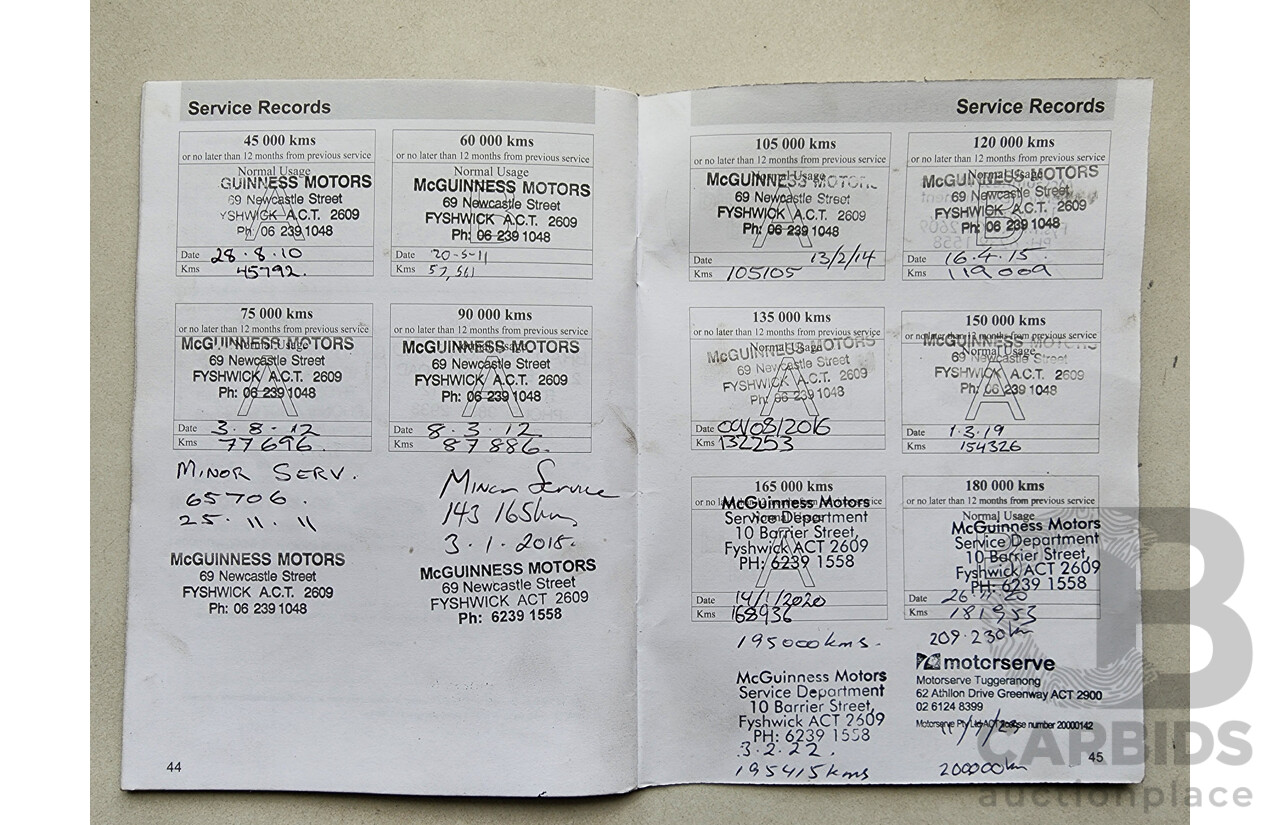 Service Records
45 000 kms
or no later than 12 months from previous service
Normal Usage
GUINNESS MOTORS
69 Newcastle Street
YSHWICK A.C.T. 2609
Ph: 06 239 1048
Date 28.8.10
Kms 45792.
60 000 kms
or no later than 12 months from previous service
Normal Usage
McGUINNESS MOTORS
69 Newcastle Street
FYSHWICK A.C.T. 2609
Ph: 06 239 1048
Date 20-5-11
Kms 57,561
75 000 kms
or no later than 12 months from previous service
Normal Usage
McGUINNESS MOTORS
69 Newcastle Street
FYSHWICK A.C.T. 2609
Ph: 06 239 1048
A
Date 3.8.12
Kms 77696.
90 000 kms
or no later than 12 months from previous service
Normal Usage
McGUINNESS MOTORS
69 Newcastle Street
FYSHWICK A.C.T. 2609
Ph: 06 239 1048
A
Date 8.3.12
Kms 87886.
MINOR SERV.
65706.
25.11.11
McGUINNESS MOTORS
69 Newcastle Street
FYSHWICK A.C.T. 2609
Ph: 06 239 1048
Minor Service
143 165km
3.1.2018.
McGUINNESS MOTORS
69 Newcastle Street
FYSHWICK ACT 2609
Ph: 6239 1558
44
Service Records
105 000 kms
or no later than 12 months from previous service
Normal Usage
McGUINNESS MOTORS
69 Newcastle Street
FYSHWICK A.C.T. 2609
Ph: 06 239 1048
A
Date 13/2/14
Kms 105105
120 000 kms
or no later than 12 months from previous service
Normal Usage
McGUINNESS MOTORS
69 Newcastle Street
FYSHWICK A.C.T. 2609
Ph: 06 239 1048
B
Date 16.4.15.
Kms 119009
135 000 kms
or no later than 12 months from previous service
Normal Usage
McGUINNESS MOTORS
69 Newcastle Street
FYSHWICK A.C.T. 2609
Ph: 06 239 1048
A
Date 09/08/2016
Kms 132253
150 000 kms
or no later than 12 months from previous service
Normal Usage
McGUINNESS MOTORS
69 Newcastle Street
FYSHWICK A.C.T. 2609
Ph: 06 239 1048
A
Date 1.3.19
Kms 154326
165 000 kms
or no later than 12 months from previous service
Normal Usage
McGuinness Motors
Service Department
10 Barrier Street,
Fyshwick ACT 2609
PH: 6239 1558
A
Date 14/1/2020
Kms 168936
180 000 kms
or no later than 12 months from previous service
Normal Usage
McGuinness Motors
Service Department
10 Barrier Street,
Fyshwick ACT 2609
PH: 6239 1558
Date
Kms 181953
195000kms.
McGuinness Motors
Service Department
10 Barrier Street,
Fyshwick ACT 2609
PH: 6239 1558
3.2.22.
195415kms
209.230km
motorserve
Motorserve Tuggeranong
62 Athllon Drive Greenway ACT 2900
02 6124 8399
Motorserve Pty Ltd ACT license number 20000142
200000km
45
B
CARBIDS
auctionplace